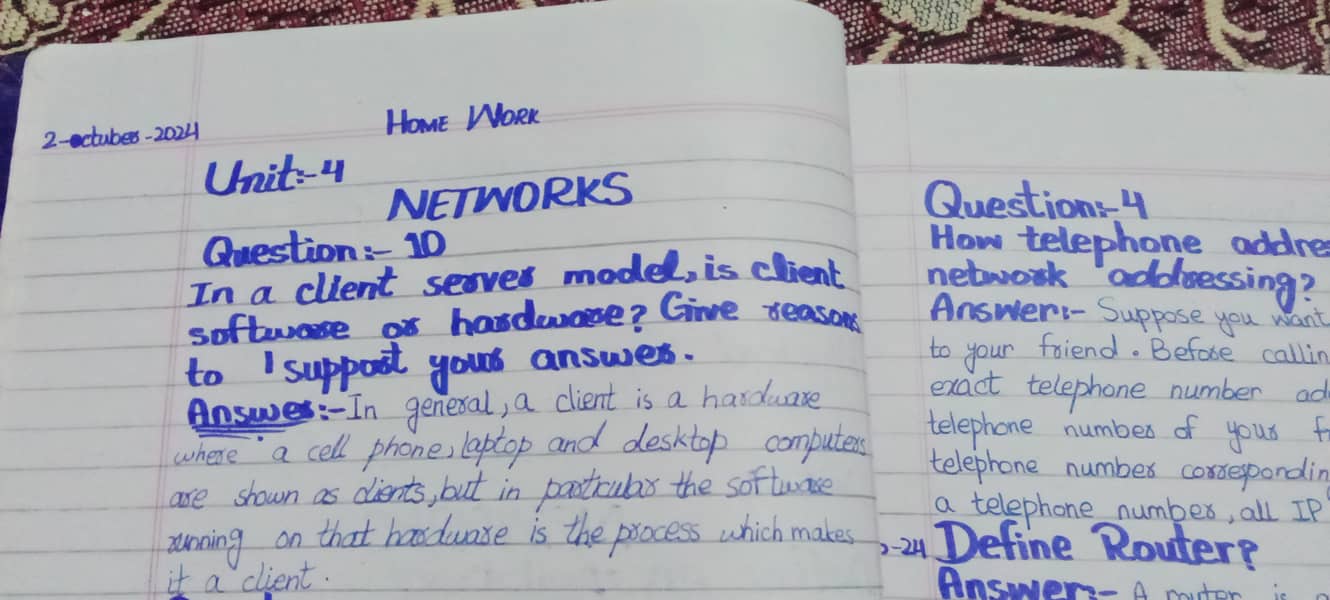 2-octuber-2024
HOME WORK
Unit:-4
NETWORKS
Question:- 10
In a client server model, is client
software or hardware? Give reasons
to support your answer.
Answer:- In general, a client is a hardware
where a cell phone, laptop and desktop computers
are shown as clients, but in particular the software
running on that hardware is the process which makes
it a client.
Question:-4
How telephone addre
network addressing?
Answer:- Suppose you want
to your friend. Before callin
exact telephone number ad
telephone number of your f
telephone number correspondin
a telephone number, all IP
-24 Define Router?
Answer:- A router is